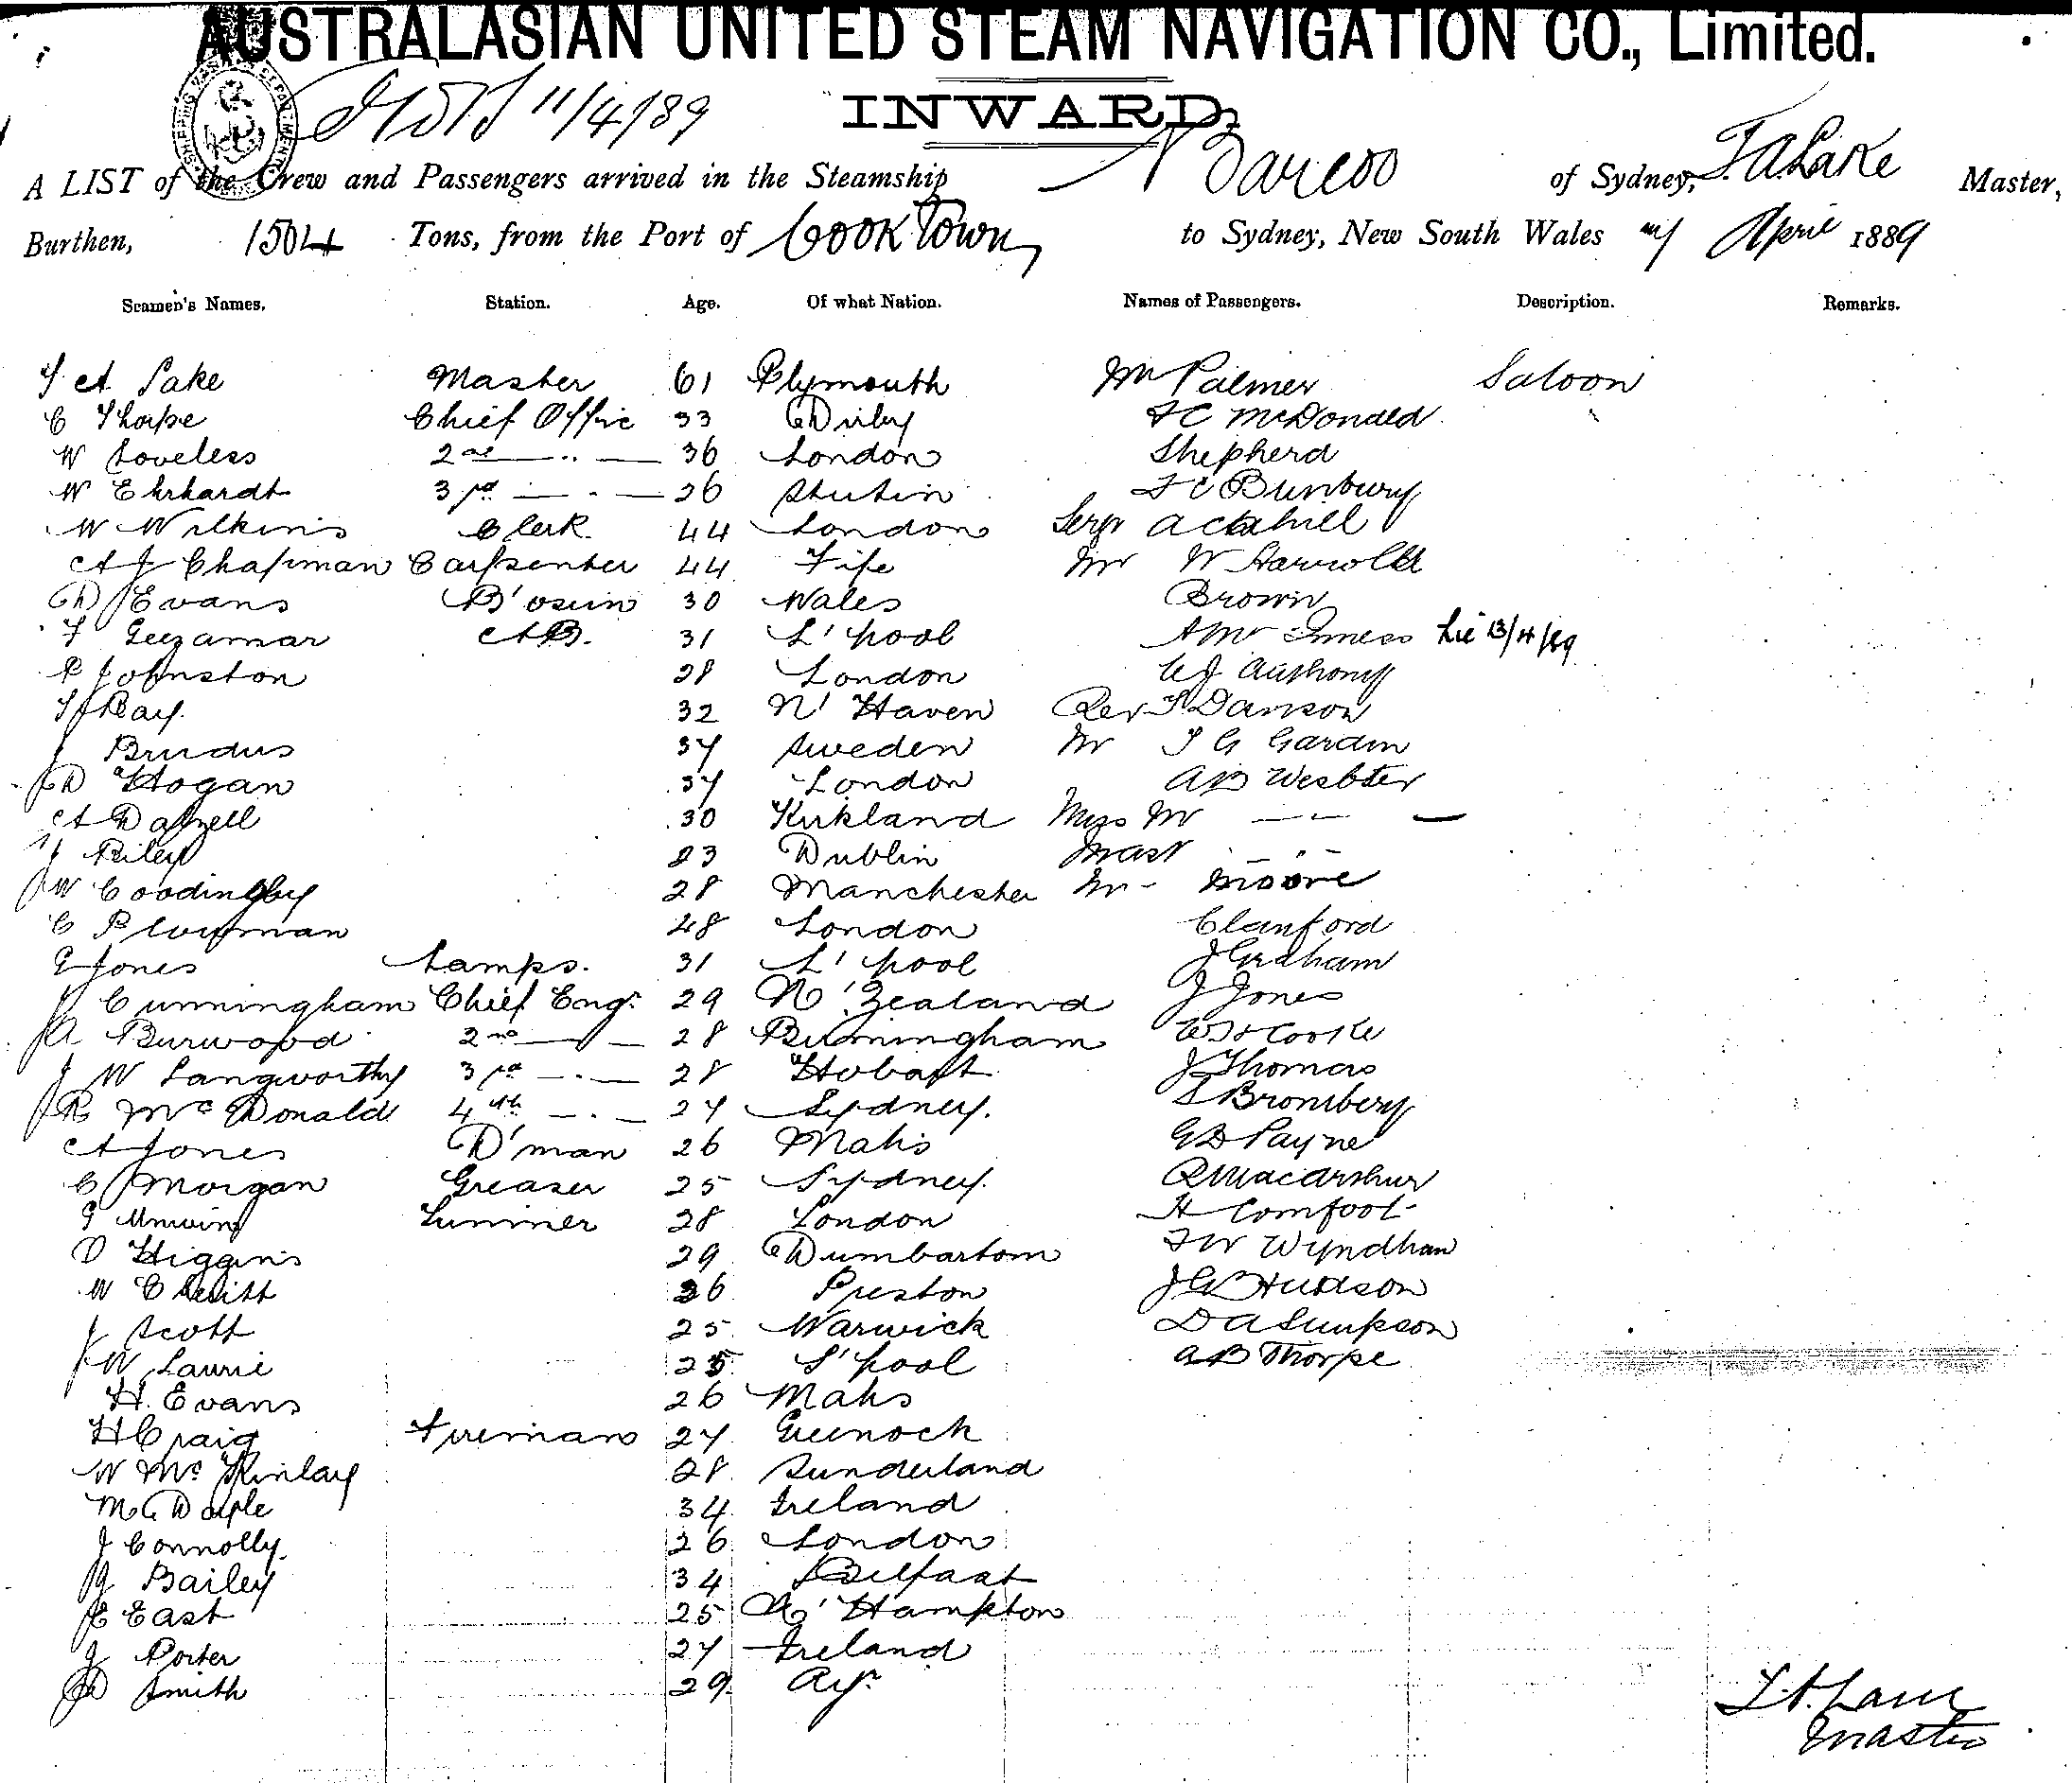 AUSTRALASIAN UNITED STEAM NAVIGATION CO., Limited.
SHIPPING DEPARTMENT
11/4/89
INWARD
A LIST of the Crew and Passengers arrived in the Steamship Barcoo of Sydney, T.A. Lake Master,
Burthen, 1504 Tons, from the Port of Cooktown to Sydney, New South Wales April 1889
Seamen's Names. Station. Age. Of what Nation. Names of Passengers. Description. Remarks.
T A Lake Master 61 Plymouth Mr Palmer Saloon
C Thorpe Chief Offic 33 F C McDonald
W Loveless 2nd 36 London Shepherd
W Ehrhardt 3rd 26 F C Bunbury
W Wilkins Clerk 44 London
A J Chapman Carpenter 44 Fife Mr W
D Evans B'osun 30 Wales Brown
F AB. 31 L'pool 13/4/89
R Johnston 28 London C J Anthony
T J Ray. 32 N' Haven Rev
J 37 Sweden Mr T G
J D Hogan 37 London A B Webster
A Dalzell 30 Kirkland Miss M
J Riley 23 Dublin Mast
J W 28 Manchester Mr Moore
C 48 London Clanford
E Jones Lamps. 31 L'pool J Graham
J Cunningham Chief Eng. 29 N' Zealand J Jones
J A Burwood 2nd 28 Birmingham W H Cooke
J W Langworthy 3rd 28 Hobart J Thomas
J R McDonald 4th 27 Sydney. S Bromberg
A Jones D'man 26 G D Payne
C Morgan Greaser 25 Sydney. R Macarthur
G Unwin 28 London H Comfoot
D Higgins 29 Dumbartom F W Wyndham
W 26 Preston J G Hudson
J Scott 25 Warwick D A Simpson
J W Laurie 25 L'pool A B Thorpe
H. Evans 26
H Craig Fireman 27 Greenock
W McKinlay 28 Sunderland
M Doyle 34 Ireland
J Connolly. 26 London
J Bailey 34 Belfast
E East 25 N' Hampton
J Porter 27 Ireland
D Smith 29 Ayr
T.A. Lake
Master